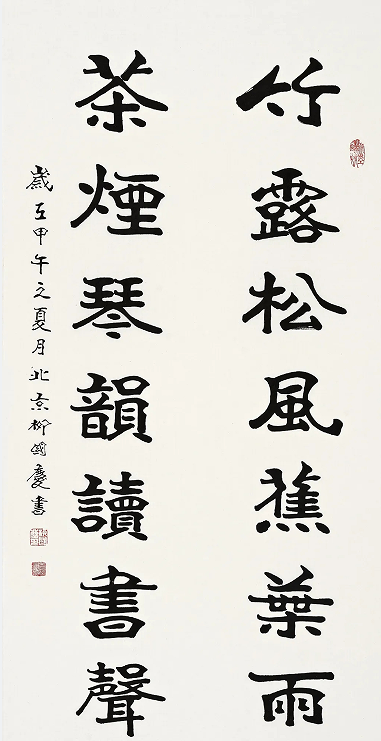 竹露松風蕉葉雨
茶煙琴韻讀書聲
歲在甲午之夏月北京柳國慶書